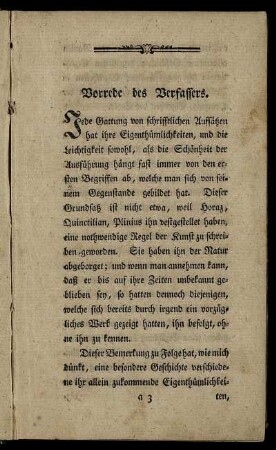 Vorrede des Verfassers.
Jede Gattung von schrifftlichen Auffsätzen
hat ihre Eigenthümlichkeiten, und die
Leichtigkeit sowohl, als die Schönheit der
Ausführung hängt fast immer von den er-
sten Begriffen ab, welche man sich von sei-
nem Gegenstande gebildet hat. Dieser
Grundsatz ist nicht etwa, weil Horaz,
Quinctilian, Plinius ihn vestgestellet haben,
eine nothwendige Regel der Kunst zu schrei-
ben geworden. Sie haben ihn der Natur
abgeborget; und wenn man annehmen kann,
daß er bis auf ihre Zeiten unbekannt ge-
blieben sey, so hatten dennoch diejenigen,
welche sich bereits durch irgend ein vorzüg-
liches Werk gezeigt hatten, ihn befolgt, oh-
ne ihn zu kennen.
Dieser Bemerkung zu Folge hat, wie mich
dünkt, eine besondere Geschichte verschiede-
ne ihr allein zukommende Eigenthümlichkei-
a 3 ten,